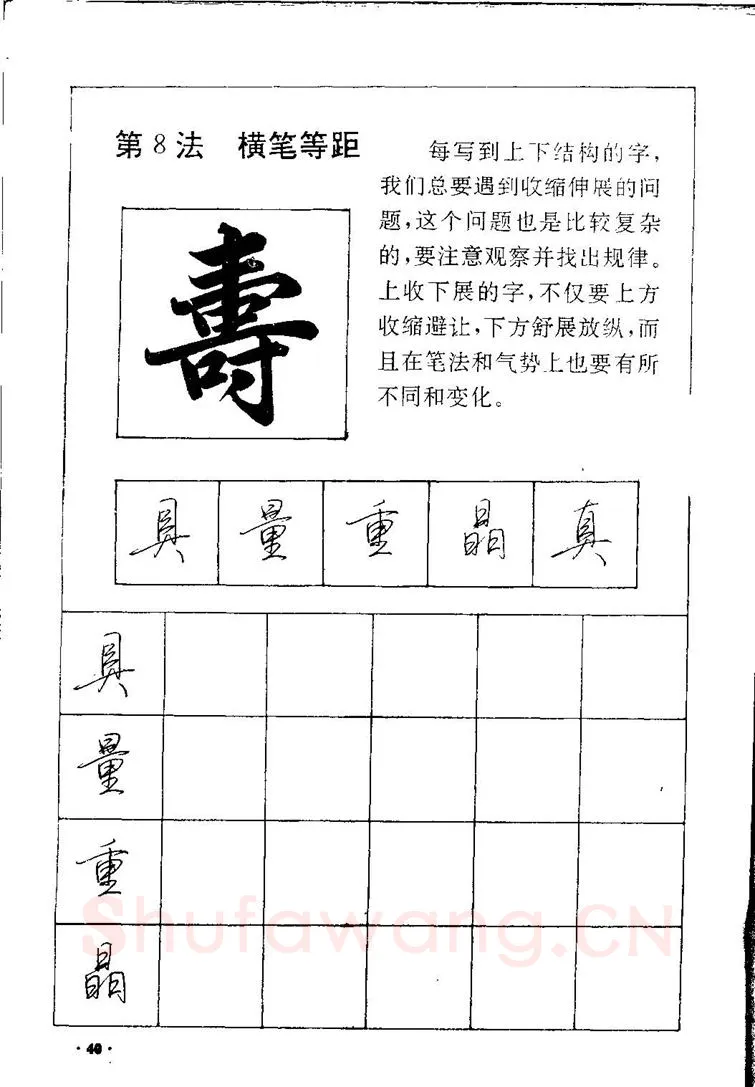 第8法 横笔等距
每写到上下结构的字,
我们总要遇到收缩伸展的问
题,这个问题也是比较复杂
的,要注意观察并找出规律。
上收下展的字,不仅要上方
收缩避让,下方舒展放纵,而
且在笔法和气势上也要有所
不同和变化。
壽
具 量 重 晶 真
具
量
重
晶
Shufawang.CN
·40·